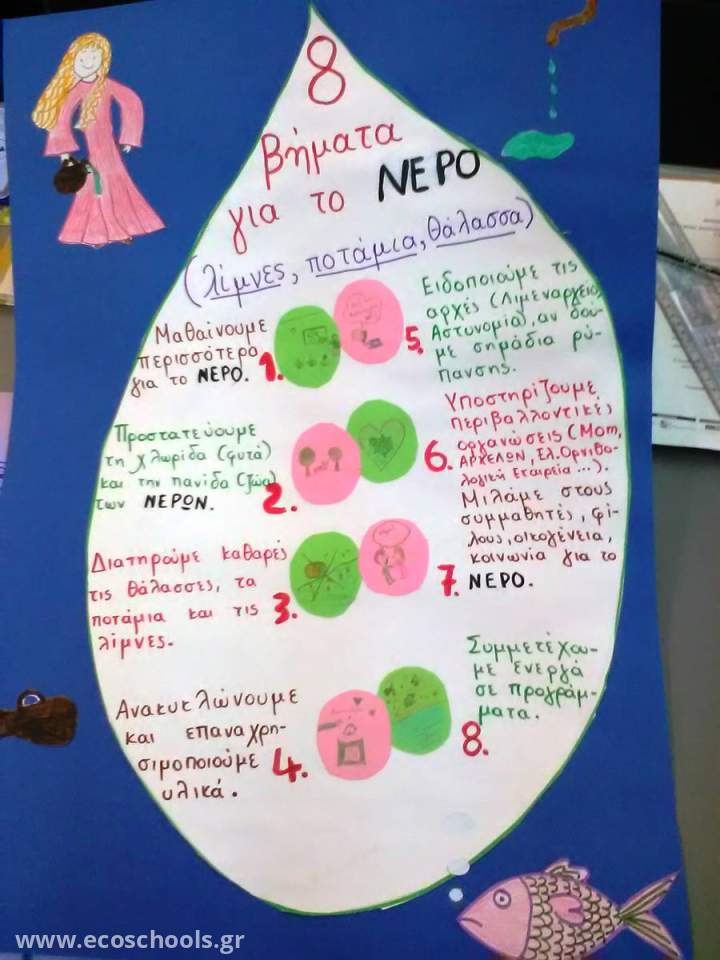 8
βήματα
για το ΝΕΡΟ
(λίμνες, ποτάμια, θάλασσα)
Μαθαίνουμε
περισσότερα
για το ΝΕΡΟ.
1.
Προστατεύουμε
τη χλωρίδα (φυτά)
και την πανίδα (ζώα)
των ΝΕΡΩΝ.
2.
Διατηρούμε καθαρές
τις θάλασσες, τα
ποτάμια και τις
λίμνες.
3.
Ανακυκλώνουμε
και επαναχρη-
σιμοποιούμε
υλικά.
4.
Ειδοποιούμε τις
αρχές (Λιμεναρχείο,
Αστυνομία), αν δού-
με σημάδια ρύ-
πανσης.
5.
Υποστηρίζουμε
περιβαλλοντικές
οργανώσεις (Mom,
ΑΡΧΕΛΩΝ, Ελ. Ορνιθο-
λογική Εταιρεία...).
6.
Μιλάμε στους
συμμαθητές, φί-
λους, οικογένεια,
κοινωνία για το
ΝΕΡΟ.
7.
Συμμετέχου-
με ενεργά
σε προγράμ-
ματα.
8.
www.ecoschools.gr